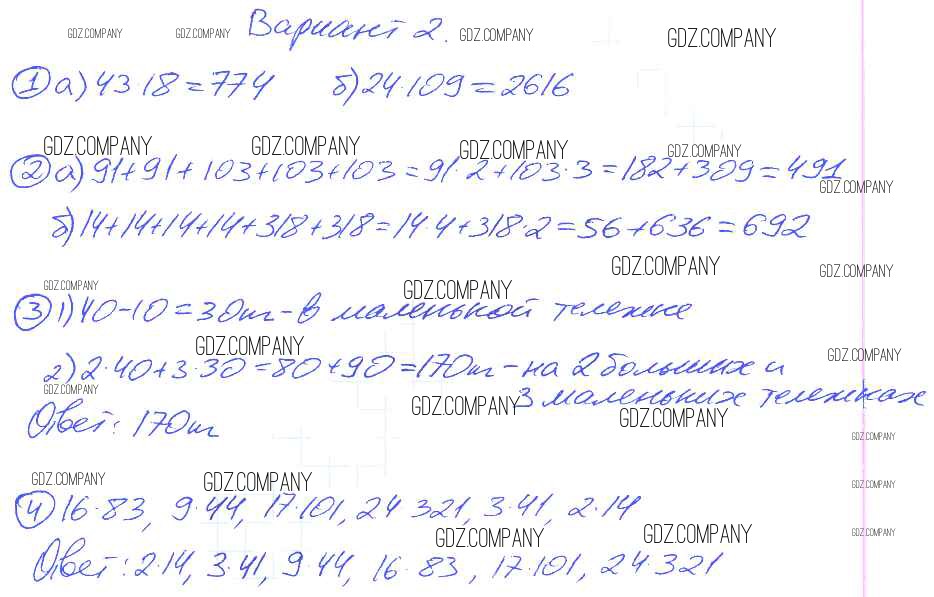 GDZ.COMPANY GDZ.COMPANY Вариант 2. GDZ.COMPANY GDZ.COMPANY
① а) 43·18=774 б) 24·109=2616
GDZ.COMPANY GDZ.COMPANY GDZ.COMPANY GDZ.COMPANY
② а) 91+91+103+103+103=91·2+103·3=182+309=491
GDZ.COMPANY
б) 14+14+14+14+318+318=14·4+318·2=56+636=692
GDZ.COMPANY GDZ.COMPANY
GDZ.COMPANY GDZ.COMPANY
③ 1) 40-10=30кг - в маленькой тележке
GDZ.COMPANY GDZ.COMPANY
2) 2·40+3·30=80+90=170кг - на 2 больших и
GDZ.COMPANY GDZ.COMPANY 3 маленьких тележках
Ответ: 170кг GDZ.COMPANY
GDZ.COMPANY
GDZ.COMPANY GDZ.COMPANY GDZ.COMPANY
④ 16·83, 9·44, 17·101, 24·321, 3·41, 2·14
GDZ.COMPANY GDZ.COMPANY GDZ.COMPANY
Ответ: 2·14, 3·41, 9·44, 16·83, 17·101, 24·321